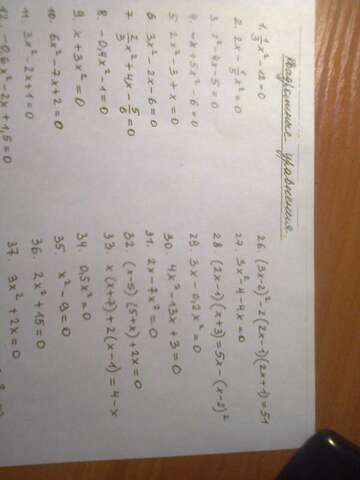 Квадратные уравнения.
1. 1/3 x² - 12 = 0
2. 2x - 1/5 x² = 0
3. x² - 4x - 5 = 0
4. -x + 5x² - 6 = 0
5. 2x² - 3 + x = 0
6. 3x² - 2x - 6 = 0
7. 2/3 x² + 4x - 5/6 = 0
8. -0,4x² - 1 = 0
9. x + 3x² = 0
10. 6x² - 7x + 2 = 0
11. 3x² - 2x + 1 = 0
12. -0,6x² - 2x + 1,5 = 0
26. (3x-2)² - 2(2x-1)(2x+1) = 51
27. 3x² - 4 - 4x = 0
28. (2x-1)(x+3) = 5x - (x-2)²
29. 3x - 0,2x² = 0
30. 4x² - 13x + 3 = 0
31. 2x - 7x² = 0
32. (x-5)(5+x) + 2x = 0
33. x(x+7) + 2(x-1) = 4 - x
34. 0,5x² = 0
35. x² - 9 = 0
36. 2x² + 15 = 0
37. 3x² + 2x = 0